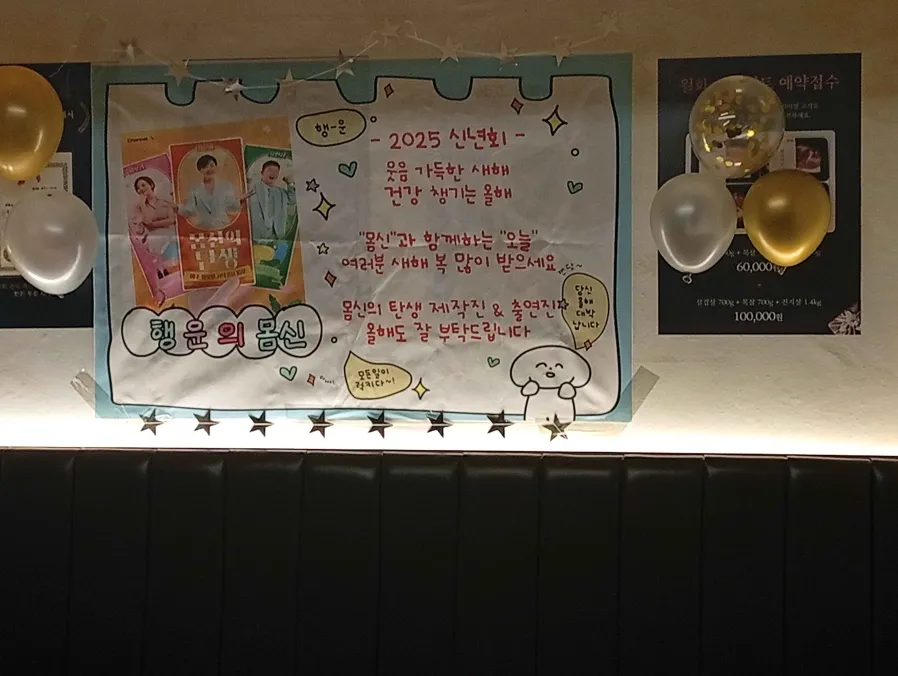 행-윤
- 2025 신년회 -
웃음 가득한 새해
건강 챙기는 올해
"몸신"과 함께하는 "오늘"
여러분 새해 복 많이 받으세요
몸신의 탄생 제작진 & 출연진
올해도 잘 부탁드립니다
몸신의
탄생
행윤의 몸신
당신
올해
대박
납니다
모든일이
럭키다~!
예약접수
60,000원
삼겹살 700g + 목살 700g + 전지살 1.4kg
100,000원